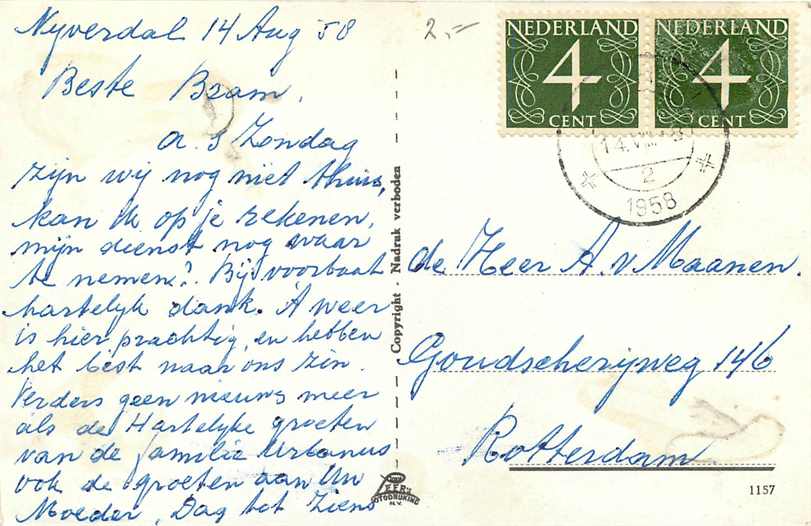 Nyverdal 14 Aug 58
Beste Bram,
a.s Zondag
zijn wij nog niet thuis,
kan ik op je rekenen,
mijn dienst nog waar
te nemen? Bij voorbaat
hartelijk dank. 't weer
is hier prachtig, en hebben
het best naar ons zin.
Verders geen nieuws meer
als de Hartelyke groeten
van de familie Urbanus
ook de groeten aan Uw
Moeder, Dag tot Ziens
2,=
Copyright - Nadruk verboden
NEDERLAND
4
CENT
NEDERLAND
4
CENT
2
1958
de Heer A. v Maanen.
Goudscherijweg 146
Rotterdam
N.V.
1157